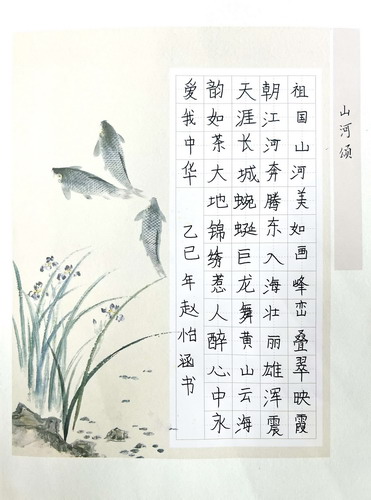 山河颂
祖国山河美如画峰峦叠翠映霞
朝江河奔腾东入海壮丽雄浑震
天涯长城蜿蜒巨龙舞黄山云海
韵如茶大地锦绣惹人醉心中永
爱我中华 乙巳年赵怡涵书